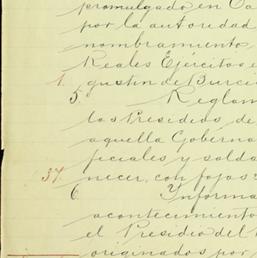 promulgado en Ca
por la autoridad
nombramiento
Reales Ejércitos e
1. gustin de Burci
5. Reglam
los Presidios de
aquella Goberna
ficiales y solda
37. necer, con fojas
6. Informa
acontecimiento
el Presidio del
originados por